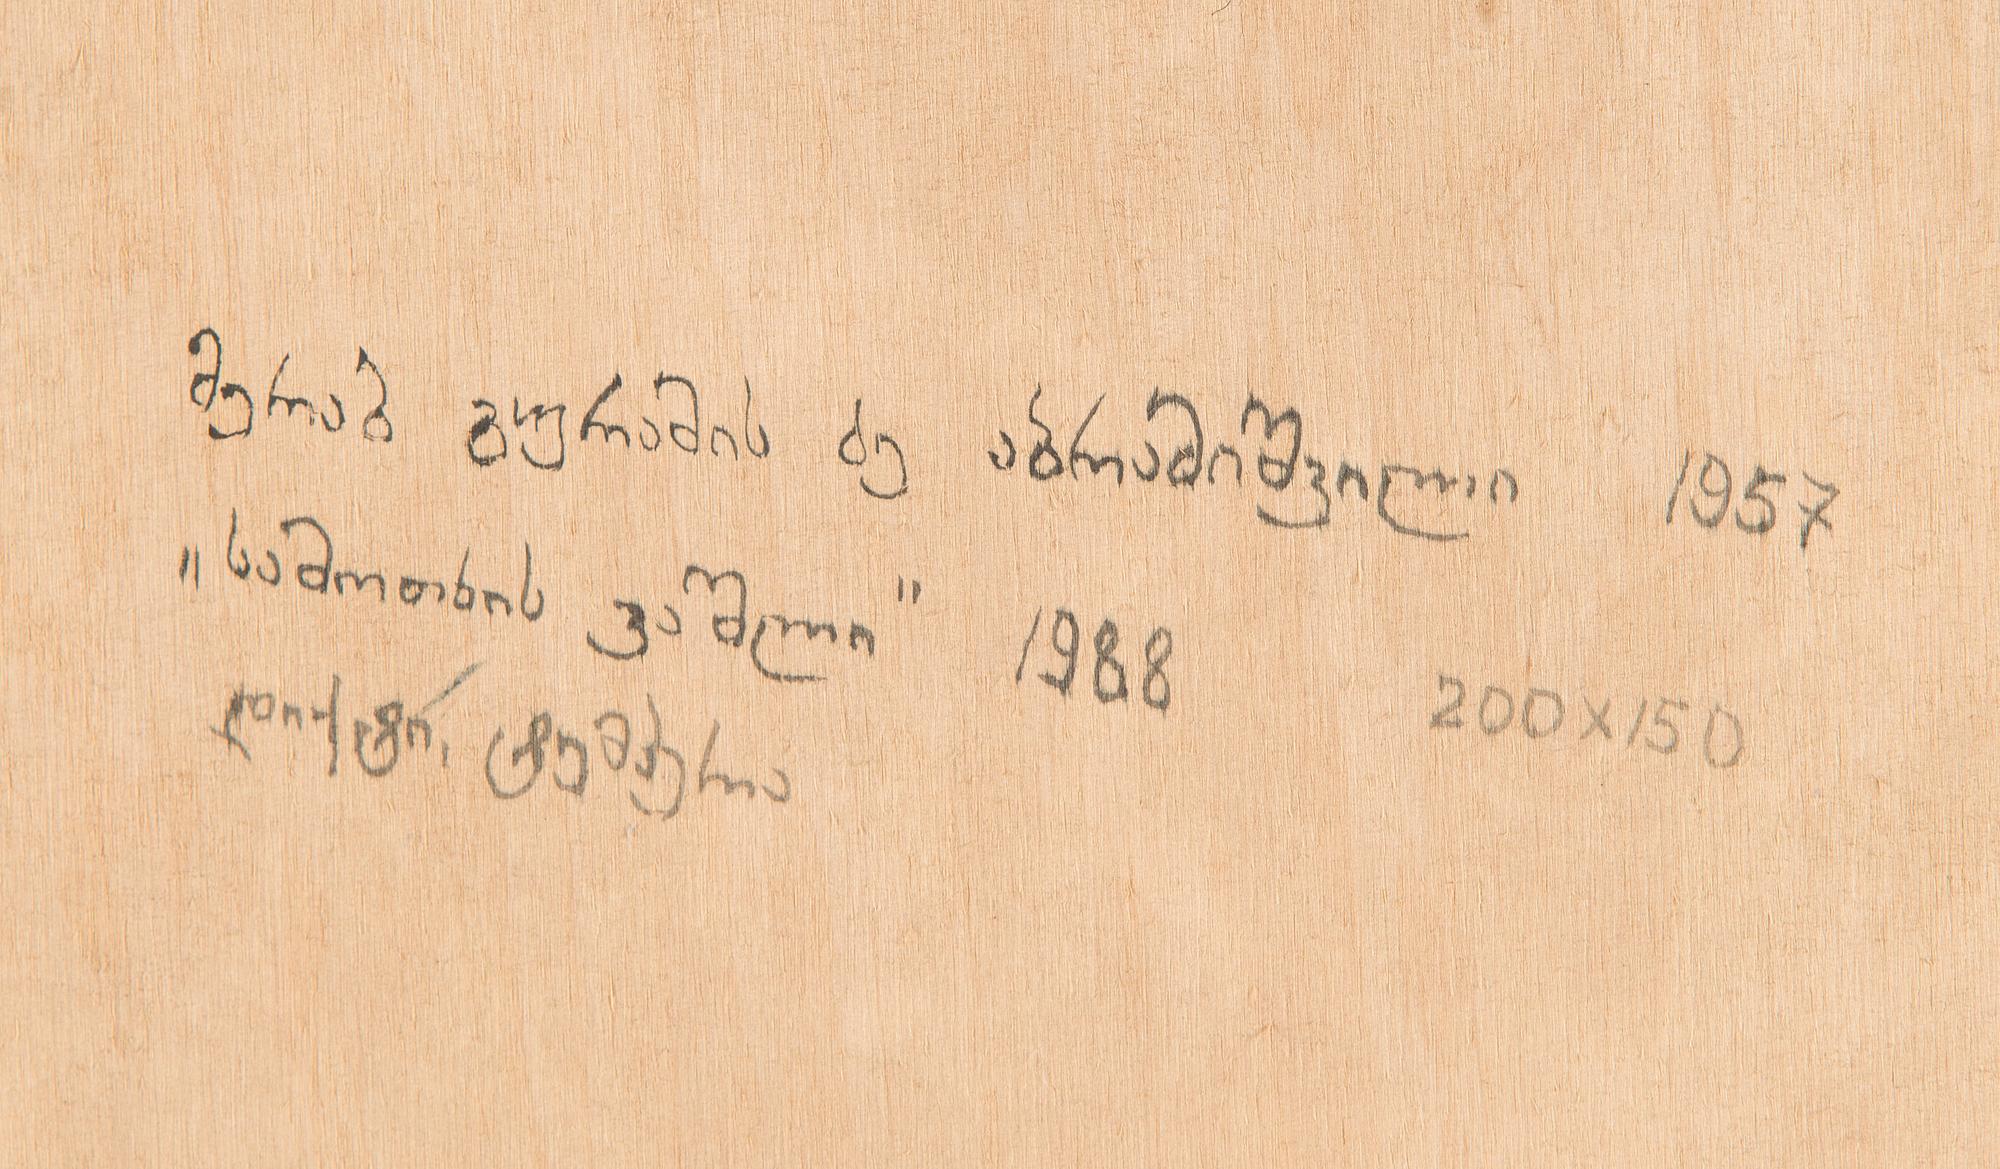 მერაბ გურამის ძე აბრამიშვილი 1957
„სამოთხის ვაშლი" 1988 200x150
ტემპერა